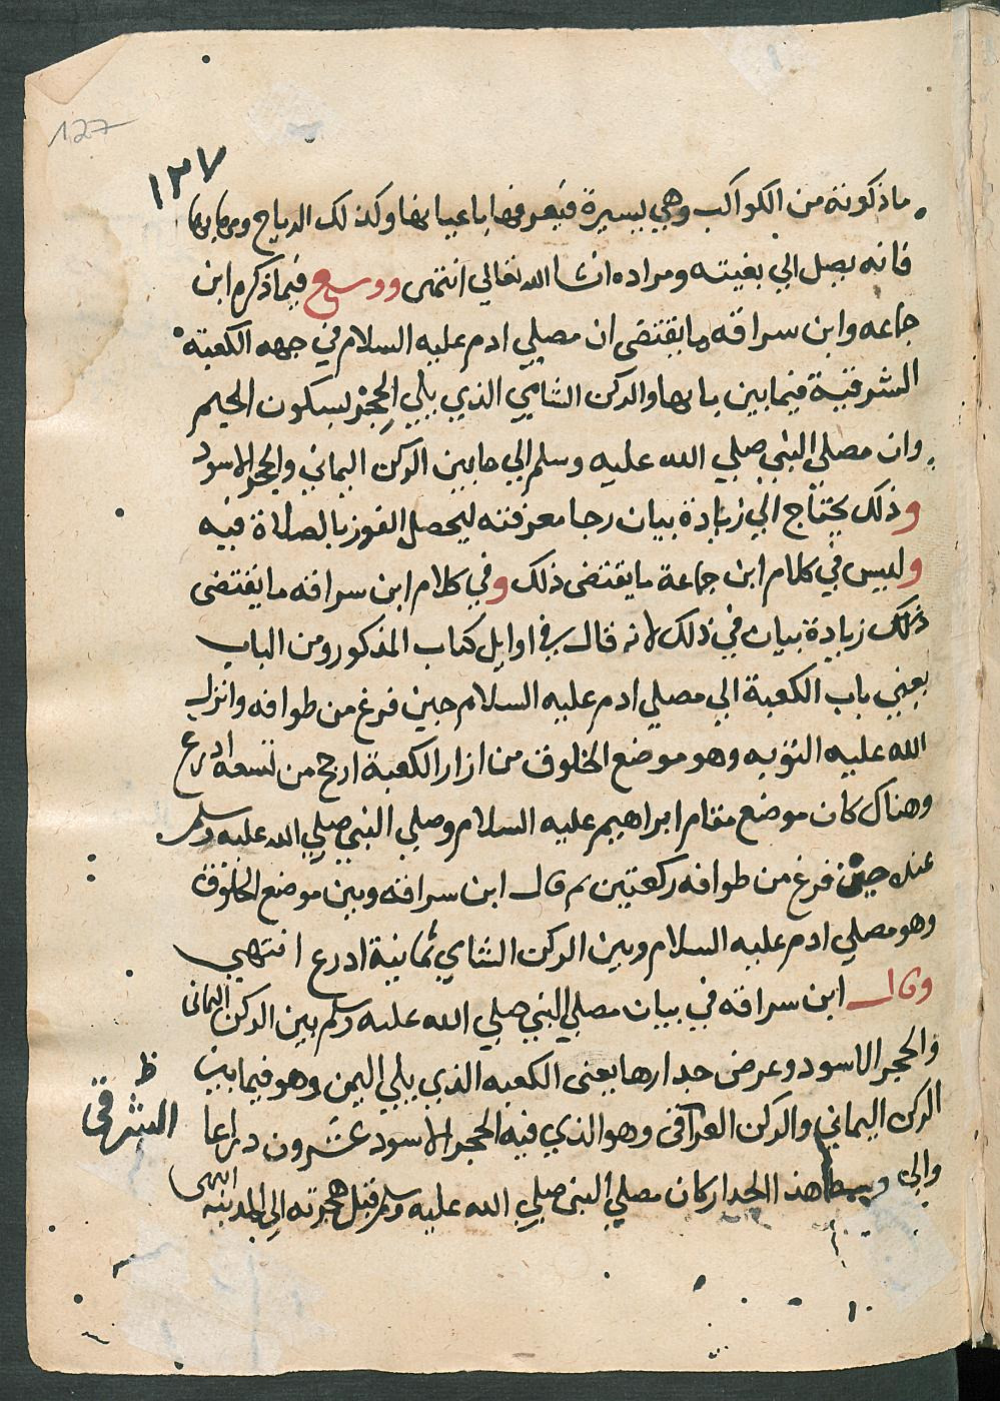 127
١٢٧
ما ذكرته من الكواكب وهي يسيرة فيعرفها باعيانها وكذلك الرياح ومهابها
فانه يصل الي بغيته ومراده ان شا الله تعالي انتهى ووسع فيما ذكره ابن
جماعه وابن سراقه ما يقتضى ان مصلي ادم عليه السلام في جهه الكعبة
الشرقية فيما بين بابها والركن الشامي الذي يلي الحِجْر بسكون الجيم
وان مصلي النبي صلي الله عليه وسلم الي ما بين الركن اليماني والحجر الاسود
وذلك يحتاج الي زيادة بيان رجا معرفته ليحصل الفوز بالصلاة فيه
وليس في كلام ابن جماعة ما يقتضى ذلك وفي كلام ابن سراقه ما يقتضى
ذلك زيادة بيان في ذلك لانه قال في اوايل كتاب المذكور ومن الباب
يعني باب الكعبة الي مصلي ادم عليه السلام حين فرغ من طوافه وانزل
الله عليه التوبه وهو موضع الخلوق من ازار الكعبة ارجح من تسعة ادرع
وهناك كان موضع مقام ابراهيم عليه السلام وصلي النبي صلي الله عليه وسلم
عنده حين فرغ من طوافه ركعتين ثم قال ابن سراقه وبين موضع الخلوق
وهو مصلي ادم عليه السلام وبين الركن الشاي ثمانية ادرع انتهي
وقال ابن سراقه في بيان مصلي النبي صلي الله عليه وسلم بين الركن اليماني
والحجر الاسود وعرض جدارها يعنى الكعبه الذي يلي اليمن وهو فيما بين
الركن اليماني والركن العراقى وهو الذي فيه الحجر الاسود عشرون دراعا
ظ
الشرقى
والي وسط هذا الجدار كان مصلي النبى صلي الله عليه وسلم قبل هجرته الي المدينه انتهى